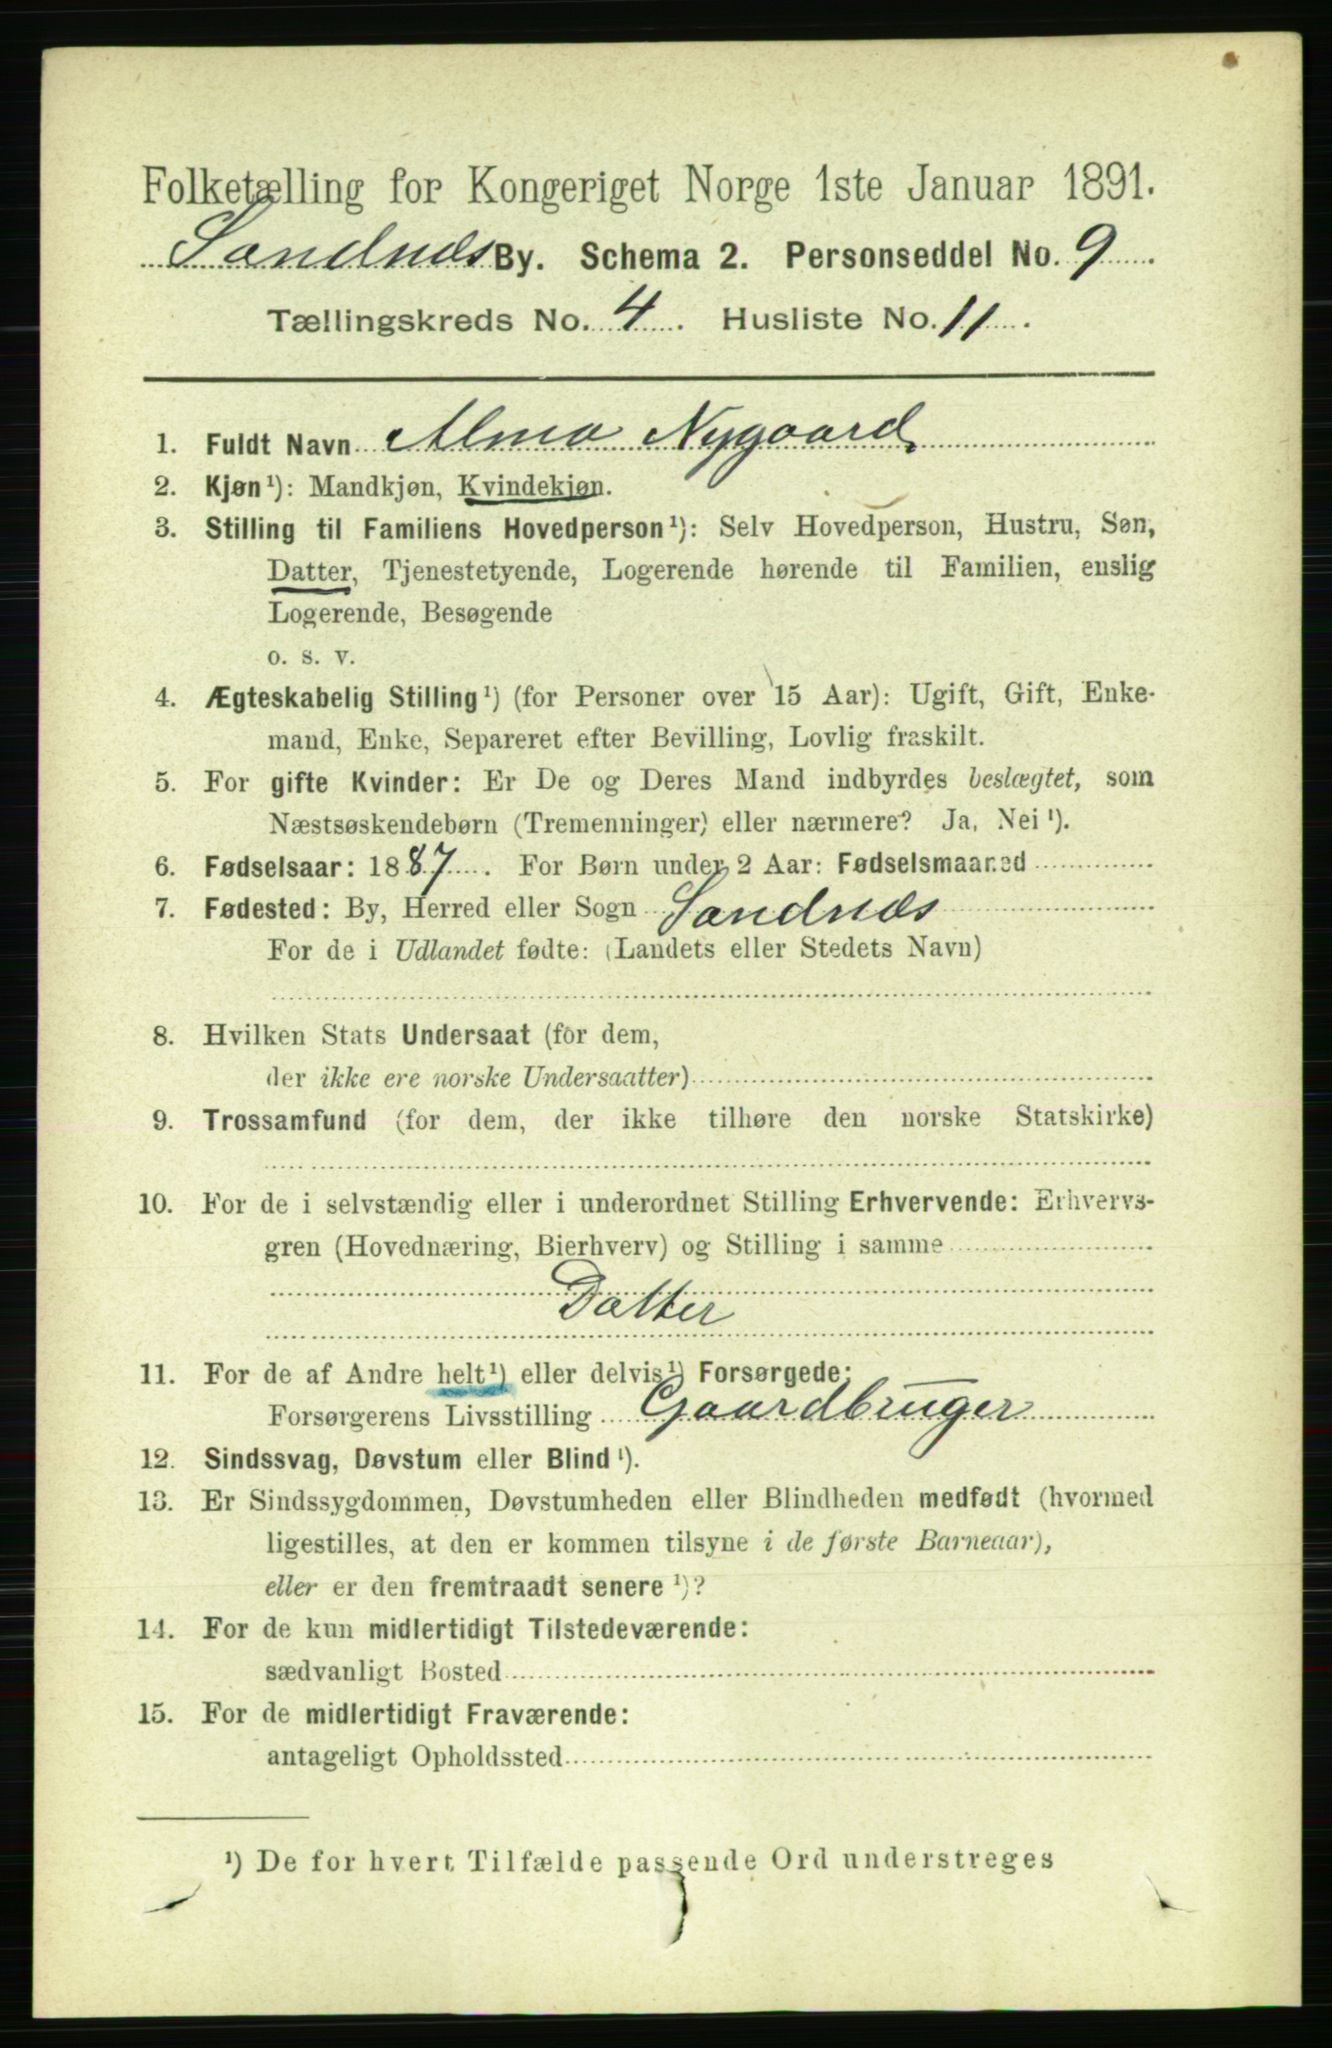 Folketælling for Kongeriget Norge 1ste Januar 1891.
Sandnæs By. Schema 2. Personseddel No. 9
Tællingskreds No. 4. Husliste No. 11.
1. Fuldt Navn Alma Nygaard
2. Kjøn¹): Mandkjøn, Kvindekjøn.
3. Stilling til Familiens Hovedperson¹): Selv Hovedperson, Hustru, Søn,
Datter, Tjenestetyende, Logerende hørende til Familien, enslig
Logerende, Besøgende
o. s. v.
4. Ægteskabelig Stilling¹) (for Personer over 15 Aar): Ugift, Gift, Enke-
mand, Enke, Separeret efter Bevilling, Lovlig fraskilt.
5. For gifte Kvinder: Er De og Deres Mand indbyrdes beslægtet, som
Næstsøskendebørn (Tremenninger) eller nærmere? Ja, Nei¹).
6. Fødselsaar: 1887. For Børn under 2 Aar: Fødselsmaaned
7. Fødested: By, Herred eller Sogn Sandnæs
For de i Udlandet fødte: (Landets eller Stedets Navn)
8. Hvilken Stats Undersaat (for dem,
der ikke ere norske Undersaatter)
9. Trossamfund (for dem, der ikke tilhøre den norske Statskirke)
10. For de i selvstændig eller i underordnet Stilling Erhvervende: Erhvervs-
gren (Hovednæring, Bierhverv) og Stilling i samme
Datter
11. For de af Andre helt¹) eller delvis¹) Forsørgede:
Forsørgerens Livsstilling Gaardbruger
12. Sindssvag, Døvstum eller Blind¹).
13. Er Sindssygdommen, Døvstumheden eller Blindheden medfødt (hvormed
ligestilles, at den er kommen tilsyne i de første Barneaar),
eller er den fremtraadt senere¹)?
14. For de kun midlertidigt Tilstedeværende:
sædvanligt Bosted
15. For de midlertidigt Fraværende:
antageligt Opholdssted
¹) De for hvert Tilfælde passende Ord understreges